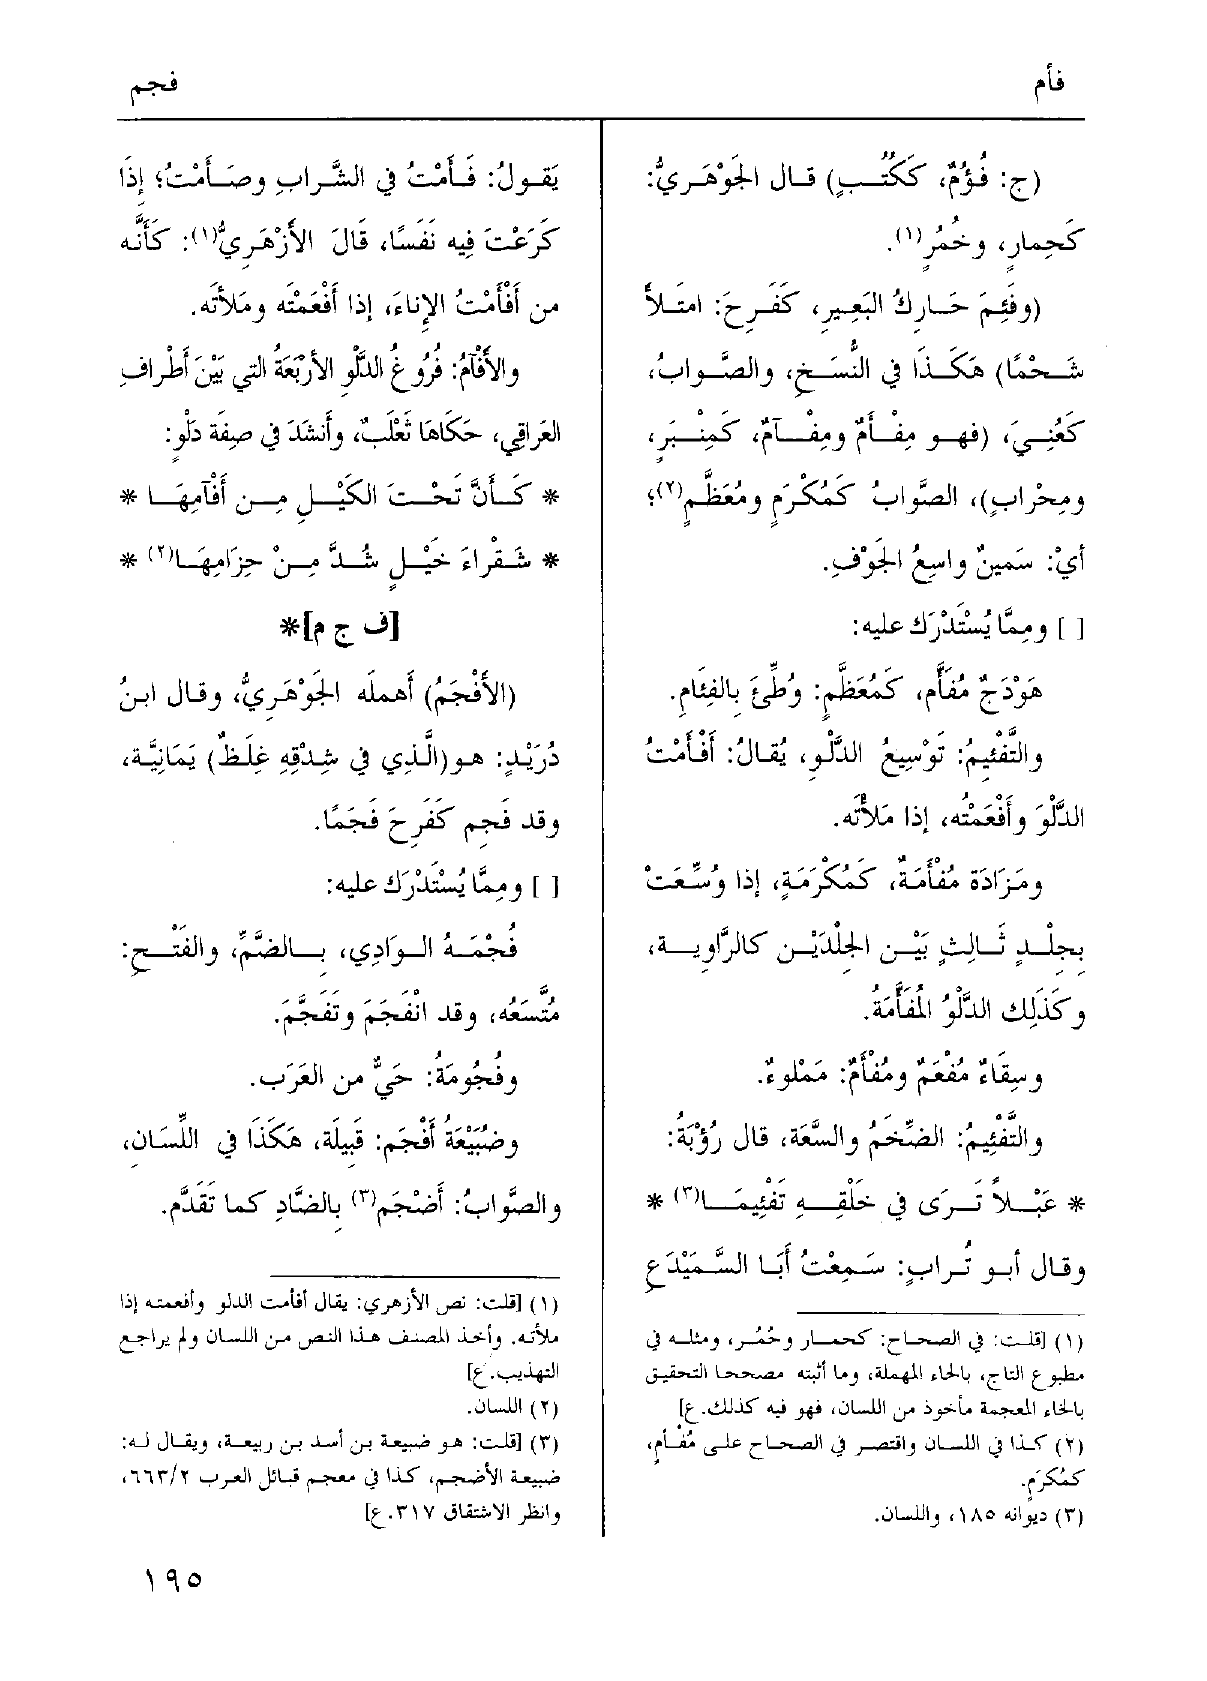 فأم
فجم
(ج: فُؤُمٌ، كَكُتُبٍ) قال الجَوْهَرِيُّ:
كَحِمارٍ، وخُمُرٍ(١).
(وفَئِمَ حَارِكُ البَعِيرِ، كَفَرِحَ: امتَلأَ
شَحْمًا) هَكَذَا في النُّسَخِ، والصَّوابُ،
كَعُنِيَ، (فهو مِفْأَمٌ ومِفْآمٌ، كَمِنْبَرٍ،
ومِحْرابٍ)، الصَّوابُ كَمُكْرَمٍ ومُعَظَّمٍ(٢)؛
أيْ: سَمِينٌ واسِعُ الجَوْفِ.
[ ] ومِمَّا يُسْتَدْرَك عليه:
هَوْدَجٌ مُفَأَّم، كَمُعَظَّمٍ: وُطِّئَ بِالفِئَامِ.
والتَّفْئِيمُ: تَوْسِيعُ الدَّلْوِ، يُقَالُ: أَفْأَمْتُ
الدَّلْوَ وأَفْعَمْتُه، إذا مَلأْتَه.
ومَزَادَة مُفْأَمَةٌ، كَمُكْرَمَةٍ، إذا وُسِّعَتْ
بِجِلْدٍ ثَالِثٍ بَيْن الجِلْدَيْن كالرَّاوِيَة،
وكَذَلِك الدَّلْوُ المُفَأَّمَةُ.
وسِقَاءٌ مُفْعَمٌ ومُفْأَمٌ: مَمْلوءٌ.
والتَّفْئِيمُ: الضِّخَمُ والسَّعَة، قال رُؤْبَةُ:
* عَبْلاً تَرَى في خَلْقِهِ تَفْئِيمَا(٣) *
وقال أبو تُرابٍ: سَمِعْتُ أَبَا السَّمَيْدَع
(١) [قلت: في الصحاح: كحمار وحُمُر، ومثله في
مطبوع التاج، بالحاء المهملة، وما أثبته مصححا التحقيق
بالخاء المعجمة مأخوذ من اللسان، فهو فيه كذلك.ع]
(٢) كذا في اللسان واقتصر في الصحاح على مُفْأَمٍ،
كمُكْرَمٍ.
(٣) ديوانه ١٨٥، واللسان.
يَقولُ: فَأَمْتُ في الشَّرابِ وصَأَمْتُ؛ إذَا
كَرَعْتَ فِيه نَفَسًا، قَالَ الأَزْهَرِيُّ(١): كَأَنَّه
من أَفْأَمْتُ الإناءَ، إذا أَفْعَمْتَه ومَلأْتَه.
والأَفْآمُ: فُرُوغُ الدَّلْوِ الأَرْبَعَةُ التي بَيْنَ أَطْرافِ
العَرَاقي، حَكَاهَا ثَعْلَبٌ، وأَنشَدَ في صِفَة دَلْوٍ:
* كَأَنَّ تَحْتَ الكَيْلِ مِن أَفْآمِهَا *
* شَقْراءَ خَيْلٍ شُدَّ مِنْ حِزَامِهَا(٢) *
[ف ج م]*
(الأَفْجَمُ) أَهمله الجَوْهَرِيُّ، وقال ابنُ
دُرَيْدٍ: هو(الَّذِي في شِدْقِهِ غِلَظٌ) يَمَانِيَّة،
وقد فَجِم كَفَرِحَ فَجَمًا.
[ ] ومِمَّا يُسْتَدْرَك عليه:
فُجْمَةُ الوَادِي، بالضَّمِّ، والفَتْحِ:
مُتَّسَعُه، وقد انْفَجَمَ وتَفَجَّمَ.
وفُجُومَةُ: حَيٌّ من العَرَب.
وضُبَيْعَةُ أَفْجَم: قَبِيلَة، هَكَذَا في اللِّسَان،
والصَّوابُ: أَضْجَم(٣) بالضَّادِ كما تَقَدَّم.
(١) [قلت: نص الأزهري: يقال أفأمت الدلو وأفعمته إذا
ملأته. وأخذ المصنف هذا النص من اللسان ولم يراجع
التهذيب.ع]
(٢) اللسان.
(٣) [قلت: هو ضبيعة بن أسد بن ربيعة، ويقال له:
ضبيعة الأضجم، كذا في معجم قبائل العرب ٦٦٣/٢،
وانظر الاشتقاق ٣١٧.ع]
١٩٥